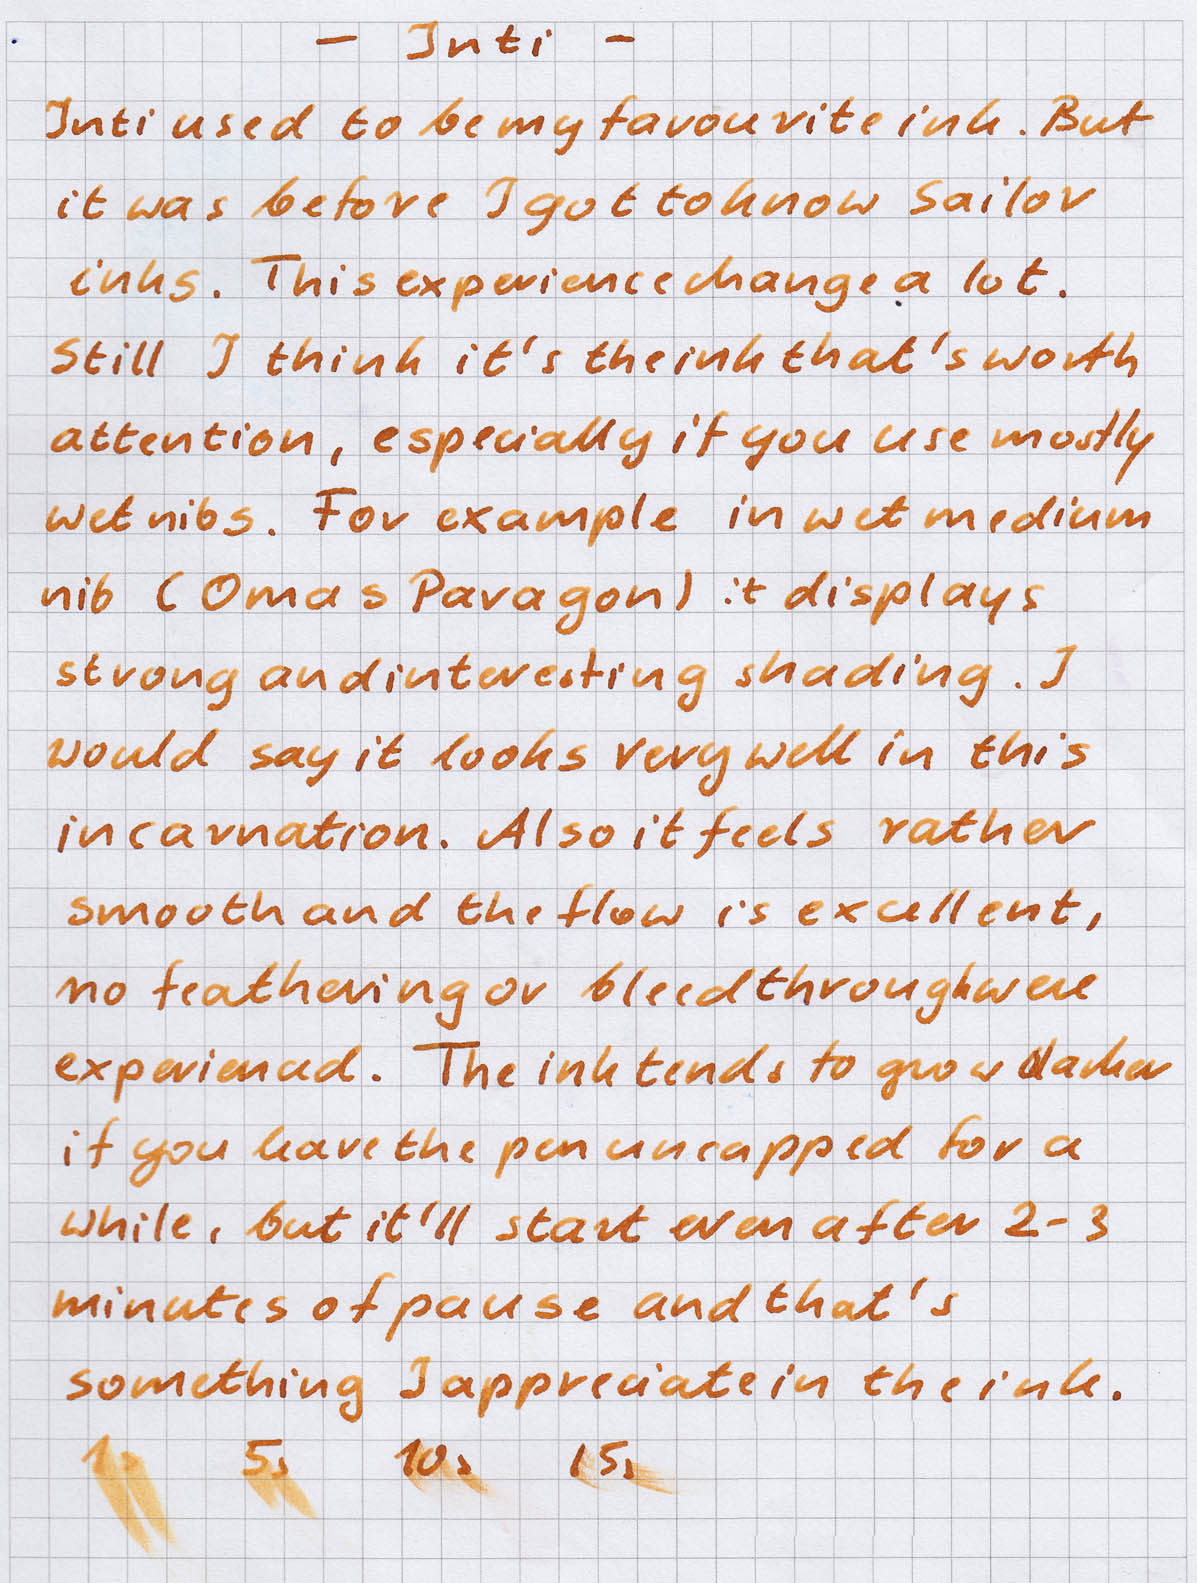 - Inti -
Inti used to be my favourite ink. But
it was before I got to know Sailor
inks. This experience change a lot.
Still I think it's the ink that's worth
attention, especially if you use mostly
wet nibs. For example in wet medium
nib (Omas Paragon) it displays
strong and interesting shading. I
would say it looks very well in this
incarnation. Also it feels rather
smooth and the flow is excellent,
no feathering or bleedthrough were
experienced. The ink tends to grow darker
if you leave the pen uncapped for a
while, but it'll start even after 2-3
minutes of pause and that's
something I appreciate in the ink.
1s 5s 10s 15s